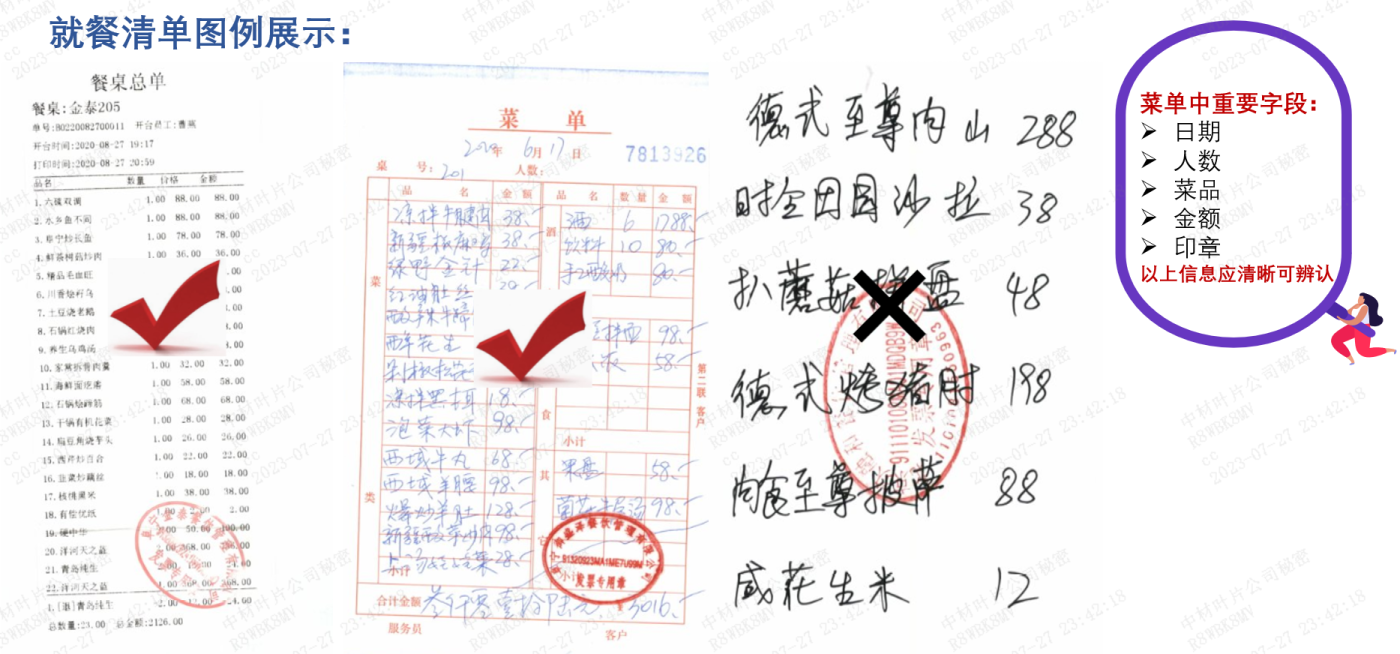 就餐清单图例展示：
餐桌总单
餐桌:金泰205
单号:B0220082700011 开台员工:
开台时间:2020-08-27 19:17
打印时间:2020-08-27 20:59
品名 数量 价格 金额
1.六碟双调 1.00 88.00 88.00
2.水乡鱼不同 1.00 88.00 88.00
3.阜宁炒长鱼 1.00 78.00 78.00
4.鲜茶树菇炒肉 1.00 36.00 36.00
5.精品毛血旺 .00
6.川香烩籽乌 .00
7.土豆烧老鹅
8.石锅红烧肉 4.00
9.养生乌鸡汤 .00
10. 1.00 32.00 32.00
11.海鲜面疙瘩 1.00 58.00 58.00
12.石锅烩蹄筋 1.00 68.00 68.00
13.干锅有机花菜 1.00 28.00 28.00
14.扁豆角烧芋头 1.00 26.00 26.00
15.西芹炒百合 1.00 22.00 22.00
16.豆浆炒藕丝 1.00 18.00 18.00
17.核桃黑米 1.00 38.00 38.00
18.有偿优纸 2.00
19.硬中华 50.00 100.00
20.洋河天之蓝 368.00
21.青岛纯生
22.洋河天之蓝 368.00
1.[退]青岛纯生 -2.00
总数量:23.00 总金额:2126.00
菜 单
年 6月 17日 7813926
桌 号: 201 人数:
品 名 金 额 品 名 数 量 金 额
凉拌牛腱肉 38.- 酒 酒 6 1788.-
38.- 饮料 10 80.-
绿野金针 22.- 80.-
菜
红油肚丝
98.-
醉花生 58.-
凉拌黑木耳 18.-
泡菜大虾 98.- 食
小计
西域牛丸 68.- 其 果盘 58.-
西域羊腰 98.-
类 爆炒羊肚 128.- 98.-
98.- 它
小计 28.- 小计
合计金额 叁仟零壹拾陆元 ¥ 3016.-
服务员 客户
第二联 客户
阜宁御盛泽餐饮管理有限公司
发票专用章
德式至尊肉山 288
时令田园沙拉 38
扒蘑菇拼盘 48
德式烤猪肘 198
肉食至尊披萨 88
咸花生米 12
发票专用章
菜单中重要字段：
➢ 日期
➢ 人数
➢ 菜品
➢ 金额
➢ 印章
以上信息应清晰可辨认
中材叶片公司秘密
R8WBK8MV
cc
2023-07-27 23:42:18